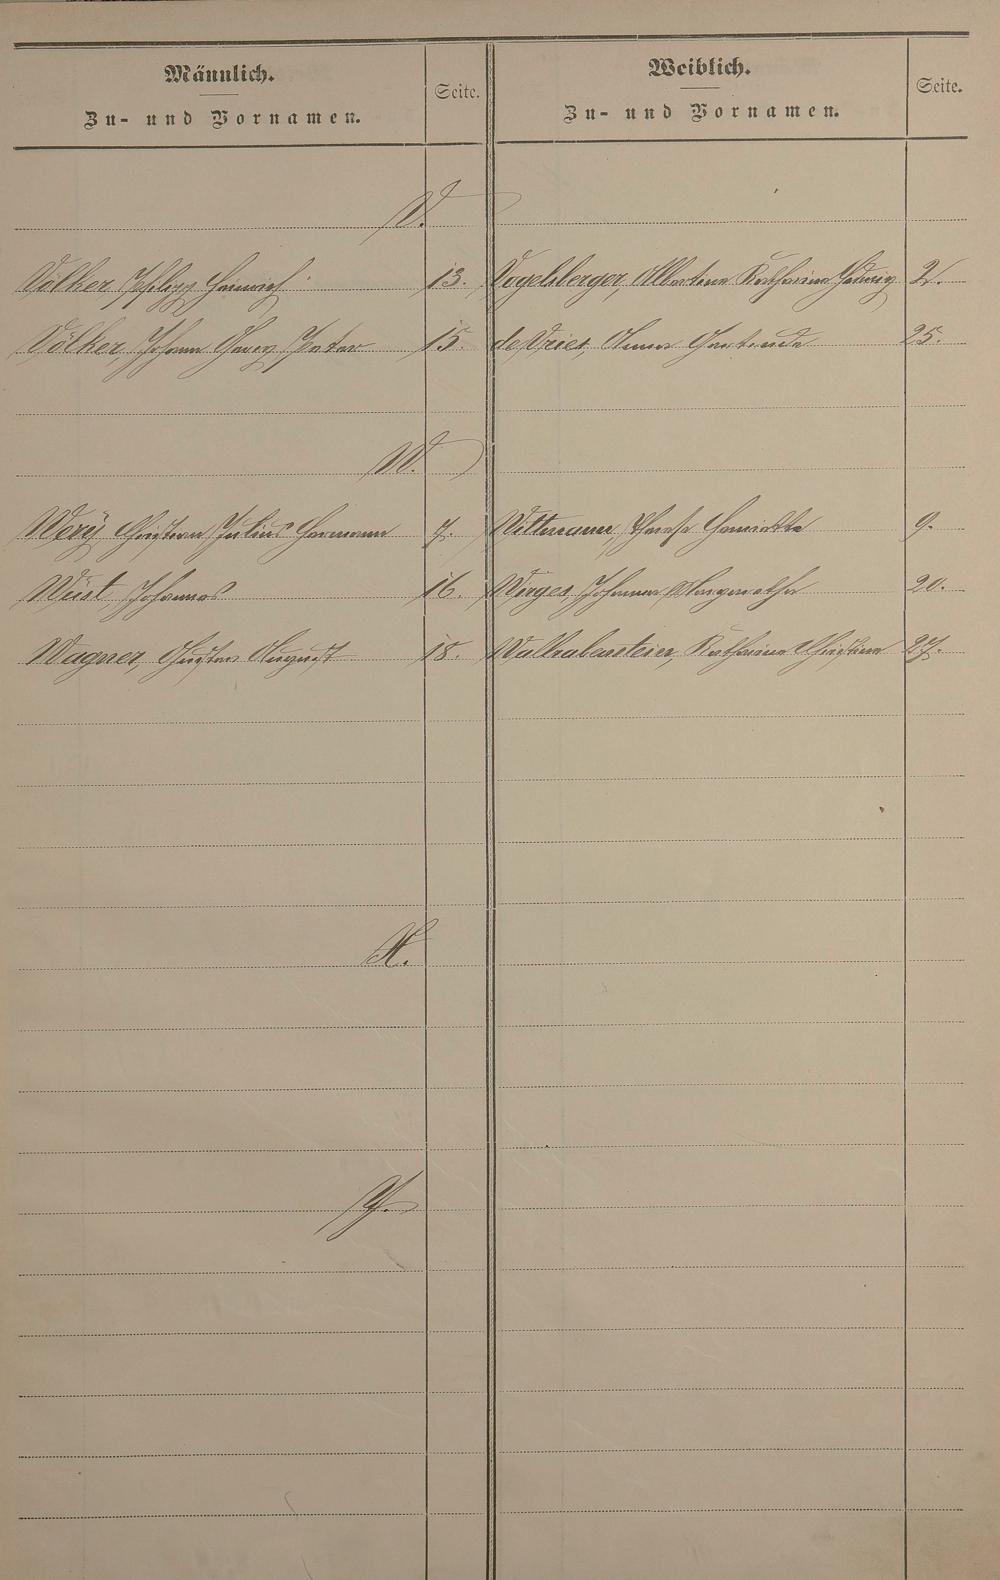 Männlich.
Zu- und Vornamen.
Seite.
Weiblich.
Zu- und Vornamen.
Seite.
V.
Völker Philipp Heinrich 13.
Vogelsberger, Albertine Katharine Hedwig 2.
Völker, Johann Georg Peter 15.
de Vries, Anna Gertrude 25.
W.
Werÿ Christian Julius Hermann 7.
Wittmann, Therese Henriette 9.
Wüst, Johannes 16.
Wirges, Johanna Margaretha 20.
Wagner, Gustav August 18.
Walrabenstein, Katharine Christine 27.
X.
Y.